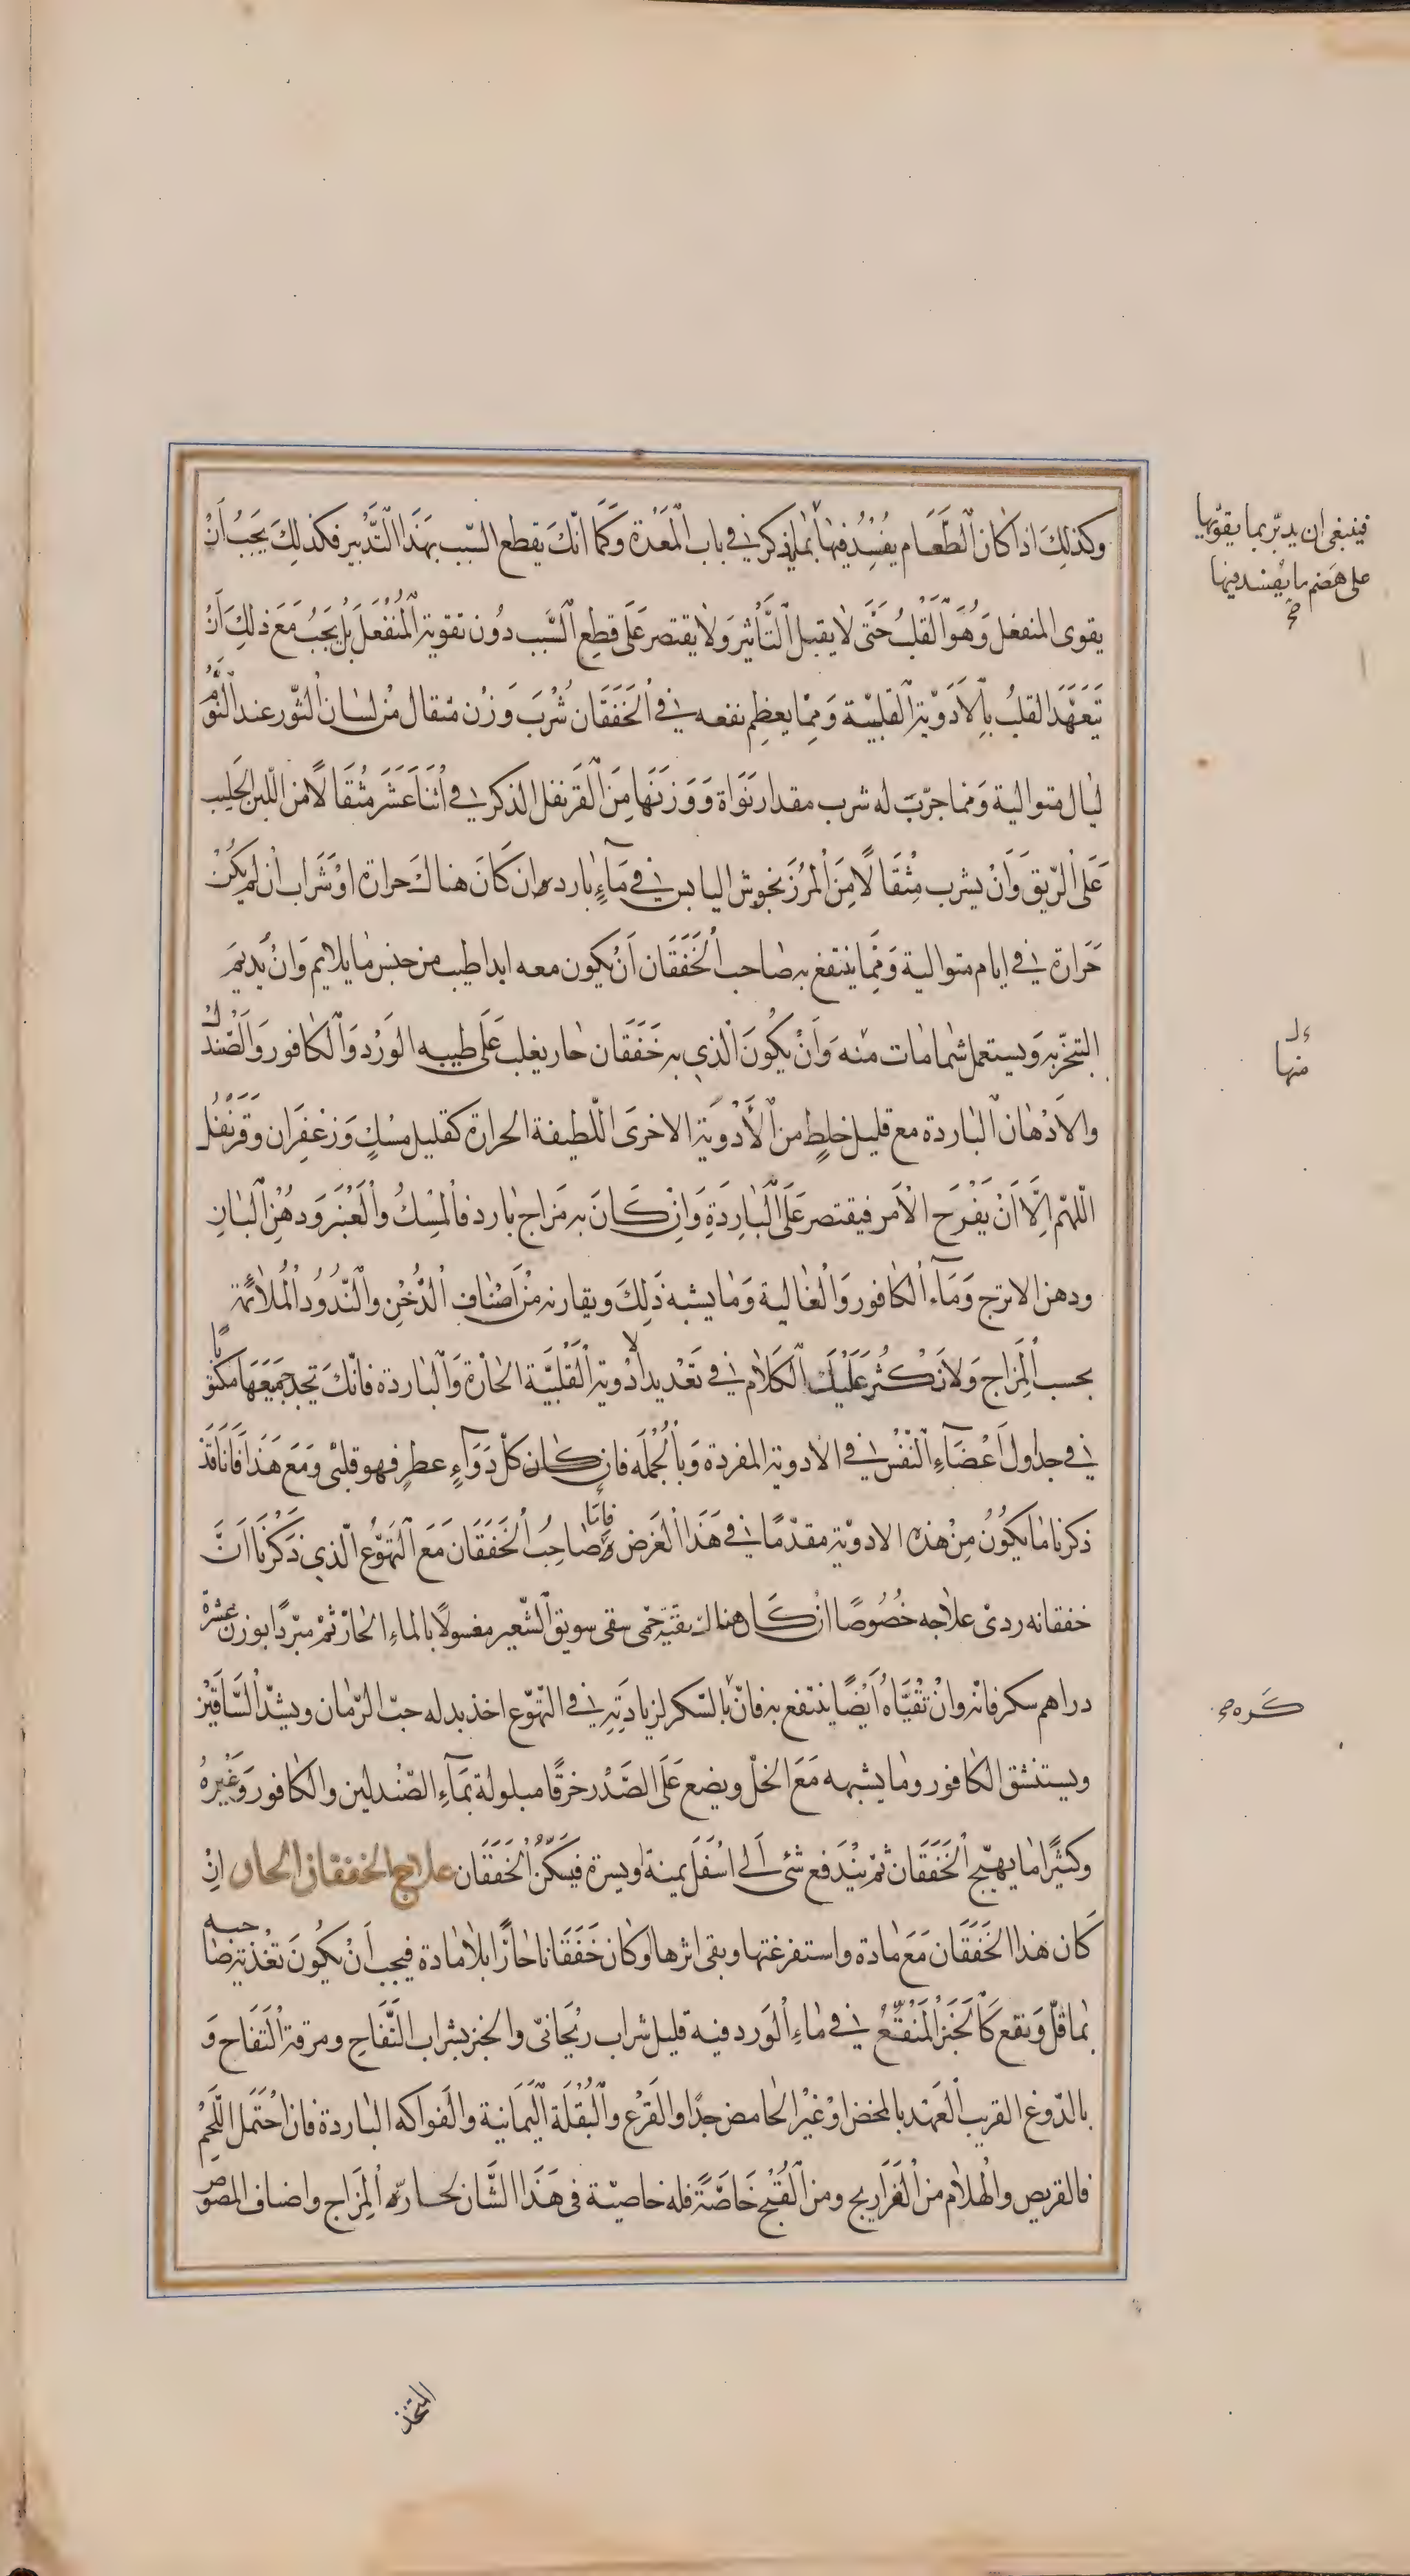 وكذلك اذا كان الطعام يفسد فيها بما ذكر في باب المعدة وكما انك يقطع السبب بهذا التدبير فكذلك يجب ان
يقوى المنفعل وهو القلب حتى لا يقبل التأثير ولا يقتصر على قطع السبب دون تقوية المنفعل بل يجب مع ذلك ان
يتعهد القلب بالادوية القلبية ومما يعظم نفعه في الخفقان شرب وزن مثقال من لسان الثور عند النوم
ليال متوالية ومما جرب له شرب مقدار نواة ووزنها من القرنفل الذكر في اثنا عشر مثقالا من اللبن الحليب
على الريق وان يشرب مثقالا من المرزنجوش اليابس في ماء بارد ان كان هناك حرارة او شراب ان لم يكن
حرارة في ايام متوالية ومما ينتفع به صاحب الخفقان ان يكون معه ابدا طيب من جنس ما يلايم وان يديم
التبخر به ويستعمل شمامات منه وان يكون الذي به خفقان حار يغلب على طيبه الورد والكافور والصندل
والادهان الباردة مع قليل خلط من الأدوية الاخرى اللطيفة الحرارة كقليل مسك وزعفران وقرنفل
اللهم الا ان يفرح الامر فيقتصر على الباردة وان كان به مزاج بارد فالمسك والعنبر ودهن البان
ودهن الاترج وماء الكافور والغالية وما يشبه ذلك ويقارنه من اصناف الدخن والندود الملائمة
بحسب المزاج ولا نكثر عليك الكلام في تعديد الادوية القلبية الحارة والباردة فانك تجد جميعها مكتوبا
في جداول اعضاء النفس في الادوية المفردة وبالجمله فان كان كل دواء عطر فهو قلبى ومع هذا فانا قد
ذكرنا ما يكون من هذه الادوية مقدما في هذا الغرض فاما صاحب الخفقان مع التهوع الذي ذكرنا ان
خفقانه ردى علاجه خصوصا ان كان هناك بقية حمى سقى سويق الشعير مغسولا بالماء الحار ثم مبردا بوزن عشرة
دراهم سكر فانه وان تقياه أيضا ينتفع به فان بالسكر لزيادته في التهوع اخذ بدله حب الرمان ويشد الساقين
ويستنشق الكافور وما يشبهه مع الخل ويضع على الصدر خرقا مبلولة بماء الصندلين والكافور وغيره
وكثيرا ما يهيج الخفقان ثم يندفع شئ الى اسفل يمينة او يسرة فيسكن الخفقان علاج الخفقان الحار ان
كان هذا الخفقان مع مادة واستفرغتها وبقى اثرها او كان خفقانا حارا بلا مادة فيجب ان يكون تغذية صاحبه
بما قل ونقع كالخبز المنقع في ماء الورد فيه قليل شراب ريحانى والخبز بشراب التفاح ومرقة التفاح و
بالدوغ القريب العهد بالمخض او غير الحامض جدا والقرع والبقلة اليمانية والفواكه الباردة فان احتمل اللحم
فالقريص والهلام من الفراريج ومن القبج خاصة فله خاصية في هذا الشان لحاره المزاج واصناف المصوص
فينبغى ان يدبر بما يقويها
على هضم ما يفسد فيها
صح
منها
كره صح
المتخذ